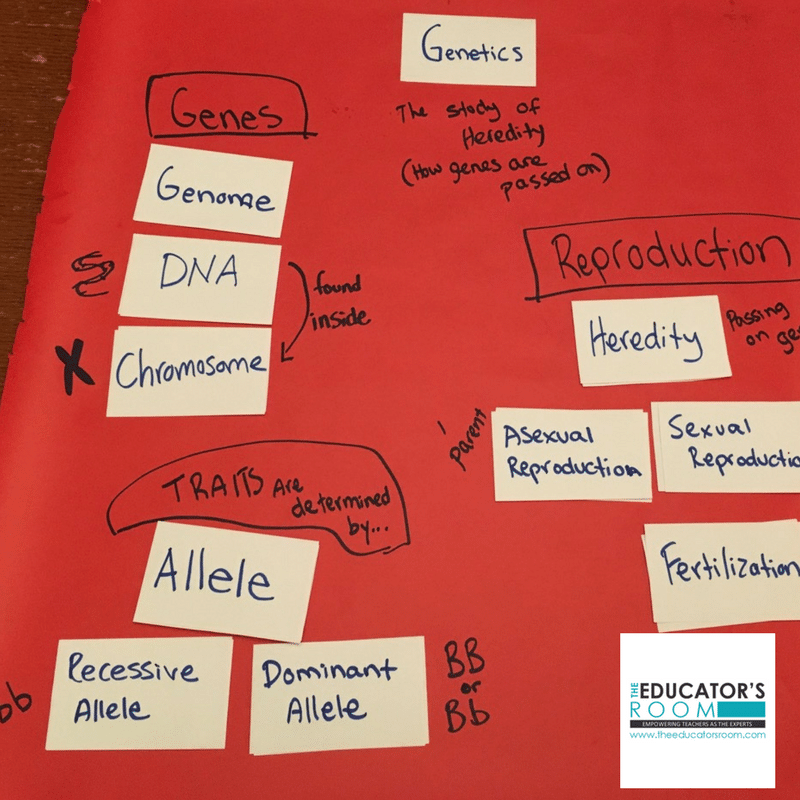 Genetics
The study of
Heredity
(How genes are
passed on)
Genes
Genome
DNA
found
inside
X
Chromosome
Reproduction
Heredity
Passing
on ge
1
parent
Asexual
Reproduction
Sexual
Reproductio
Fertilization
TRAITS Are
determined
by...
Allele
bb
Recessive
Allele
Dominant
Allele
BB
or
Bb
THE
EDUCATOR'S
ROOM
EMPOWERING TEACHERS AS THE EXPERTS
www.theeducatorsroom.com